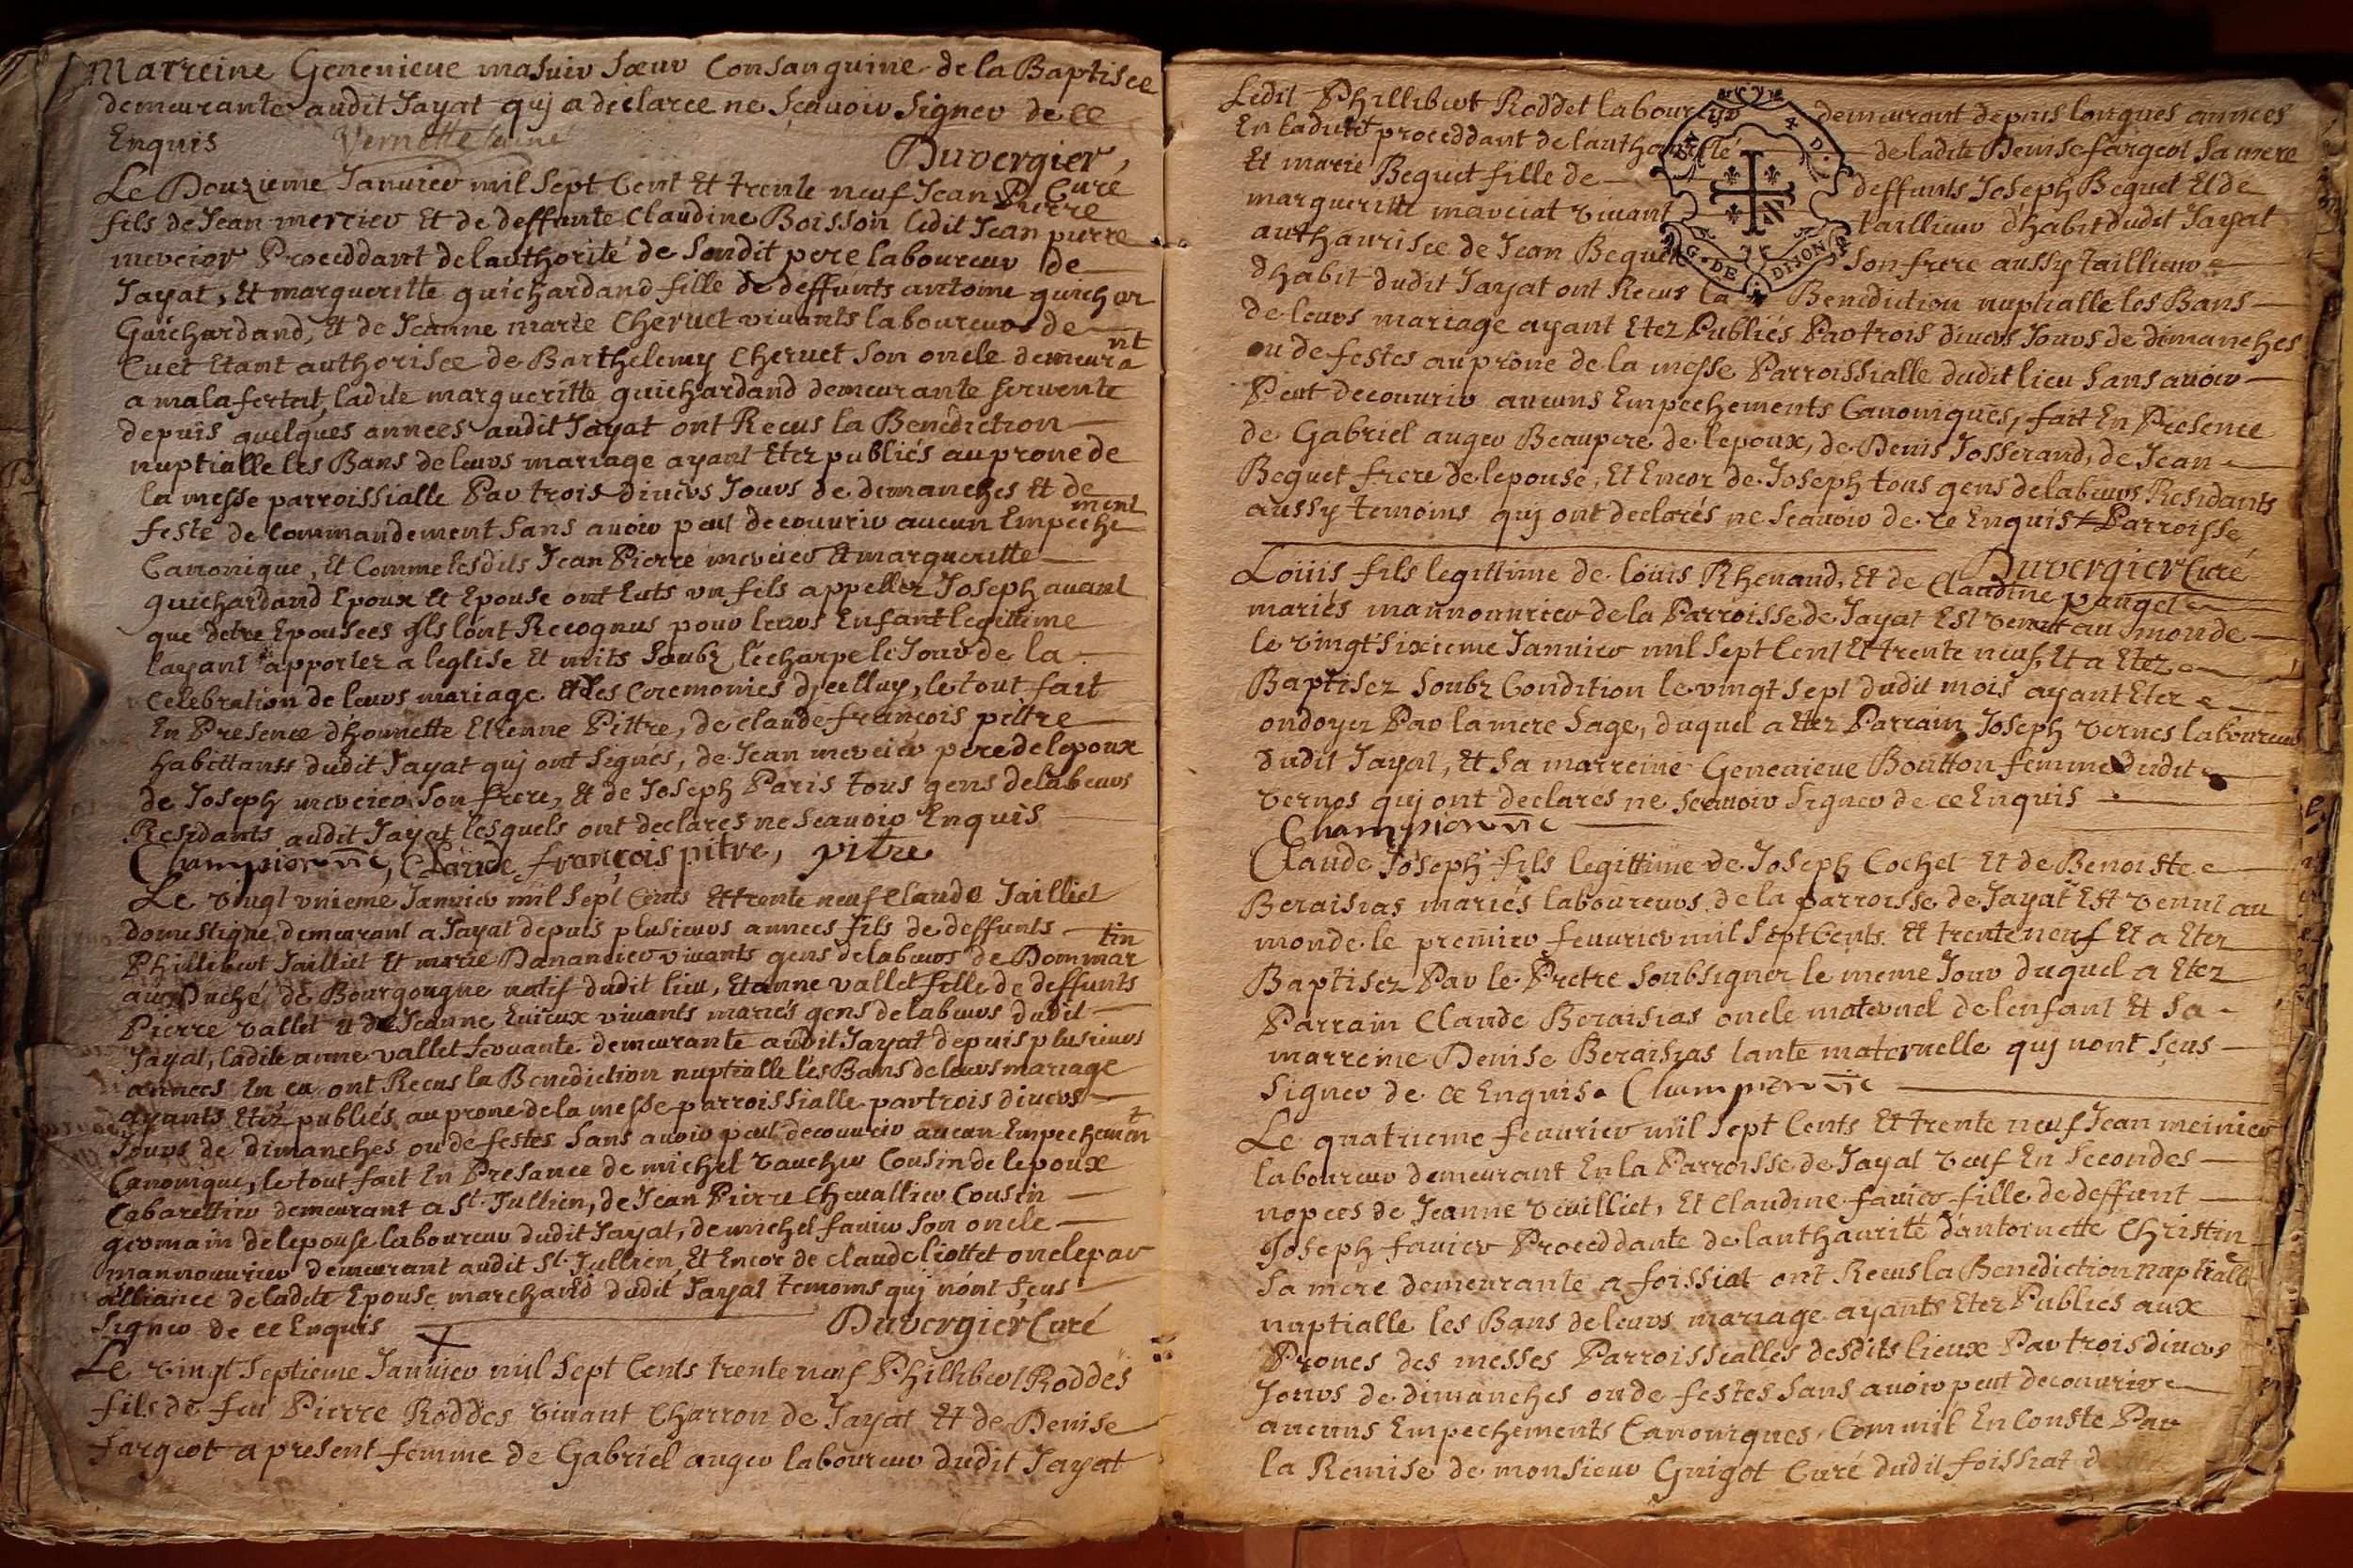 Marreine Genevieve masuir Sœur Consanguine de la Baptisee
demeurante audit Jayat quj a declaree ne Sçavoir Signer de ce
Enquis
Duvergier,
Curé
Le Douzieme Janvier mil Sept Cent Et trente neuf Jean Pierre
fils de Jean mercier Et de deffunte Claudine Boisson ledit Jean pierre
mercier Proceddant de lauthorité de Sondit pere laboureur de
Jayat, Et margueritte guichardand fille de deffunts antoine guichar
Guichardand, Et de Jeanne marie Chervet vivants laboureurs de
Cuet Etant authorisee de Barthelemy Chervet Son oncle demeurant
a malafertat, ladite margueritte guichardand demeurante servente
depuis quelques annees audit Jayat ont Recus la Benediction
nuptialle les Bans de leurs mariage ayant Etez publiés au prone de
la messe parroissialle Par trois divers Jours de dimanches Et de
feste de Commandement Sans avoir peut decouvrir aucun Empechement
Canonique, Et Comme lesdits Jean Pierre mercier Et margueritte
guichardand Epoux Et Epouse ont Euts un fils appellez Joseph avant
que detre Epousees Ils lont Recognus pour leurs Enfant legitime
layant apportez a leglise Et mits Soubz lécharpe le Jour de la
Celebration de leurs mariage Et des Ceremonies djcelluy, le tout fait
En Presence dhonnette Etienne Pittre, de claude françois pittre
habittanss dudit Jayat quj ont Signés, de Jean mercier pere de lepoux
de Joseph mercier Son frere, Et de Joseph Paris tous gens de labeurs
Residants audit Jayat lesquels ont declares ne Scavoir Enquis
Championvic, Claude françois pitre, pitre
Le vingt unieme Janvier mil Sept Cents Et trente neuf Claude Jailliet
domestique demeurant a Jayat depuis plusieurs annees fils de deffunts
Phillibert Jailliet Et marie Danancier vivants gens de labeurs de Dommartin
au Duché de Bourgougne natif dudit lieu, Et anne vallet fille de deffunts
Pierre vallet Et de Jeanne Euieux vivants mariés gens de labeurs dudit
Jayat, ladite anne vallet Servante demeurante audit Jayat depuis plusieurs
annees En ça ont Recus la Benediction nuptialle les Bans de leurs mariage
ayants Etez publiés au prone de la messe parroissialle par trois divers
Jours de dimanches ou de festes Sans avoir peut decouvrir aucun Empechement
Canonique, le tout fait En Presance de michel vaucher Cousin de lepoux
Cabarettier demeurant a St. Jullien, de Jean Pierre Chevallier Cousin
germain de lepouse laboureur dudit Jayat, de michel favier Son oncle
mannouvrier demeurant audit St. Jullien, Et Encor de claude liottet oncle par
alliance de ladite Epouse marchand dudit Jayat temoins quj nont Sçus
Signer de ce Enquis Duvergier Curé
Le vingt Septieme Janvier mil Sept Cents trente neuf Phillibert Roddes
fils de feu Pierre Roddes vivant Charron de Jayat Et de Denise
fargeot a present femme de Gabriel auger laboureur dudit Jayat
Ledit Phillibert Roddet laboureur demeurant depuis longues annees
En ladite proceddant de lauthorité de ladite Denise fargeot Sa mere
Et marie Bequet fille de deffunts Joseph Bequet Et de
margueritte marciat vivant taillieur dhabit dudit Jayat
authaurisee de Jean Bequet Son frere aussy taillieur
dhabit dudit Jayat ont Recus la Benediction nuptialle les Bans
de leurs mariage ayant Etez Publiés Par trois divers Jours de dimanches
ou de festes au prone de la messe Parroissialle dudit lieu Sans avoir
Peut decouvrir aucuns Empechements Canoniques, fait En Presence
de Gabriel auger Beaupere de lepoux, de Denis Josserand, de Jean
Bequet frere de lepouse, Et Encor de Joseph tous gens de labeurs Residants
aussy temoins quj ont declarés ne Scavoir de ce Enquis Parroisse
Duvergier Curé
Loüis fils legittime de loüis Rhenaud, Et de Claudine pauget
mariés mannouvrier de la Parroisse de Jayat Est venut au monde
le vingt Sixieme Janvier mil Sept Cent Et trente neuf, Et a Etez
Baptisez Soubz Condition le vingt Sept dudit mois ayant Etez
ondoyez Par la mere Sage, duquel a Etez Parrain Joseph vernes laboureur
dudit Jayat, Et Sa marreine Genevieve Boutton femme dudit
vernes quj ont declares ne Scavoir Signer de ce Enquis
Championvic
Claude Joseph fils legittime de Joseph Cochet Et de Benoiste
Beraisias mariés laboureurs de la parroisse de Jayat Est venut au
monde le premier fevrier mil Sept Cents Et trente neuf Et a Etez
Baptisez Par le Pretre Soubsigner le meme Jour duquel a Etez
Parrain Claude Beraisias oncle maternel de lenfant Et Sa
marreine Denise Beraisias tante maternelle quj nont Sçus
Signer de ce Enquis. Championvic
Le quatrieme fevrier mil Sept Cents Et trente neuf Jean meinier
laboureur demeurant En la Parroisse de Jayat veuf En Secondes
nopces de Jeanne veuilliet, Et Claudine favier fille de deffunt
Joseph favier Proceddante de lauthaurité dantoinette Christin
Sa mere demeurante a foissiat ont Recus la Benediction nuptialle
nuptialle les Bans de leurs mariage ayants Etez Publies aux
Prones des messes Parroissialles desdits lieux Par trois divers
Jours de dimanches ou de festes Sans avoir peut decouvrir
aucuns Empechements Canoniques Comm'il En Conste Par
la Remise de monsieur Guigot Curé dudit foissiat
G. DE DIJON